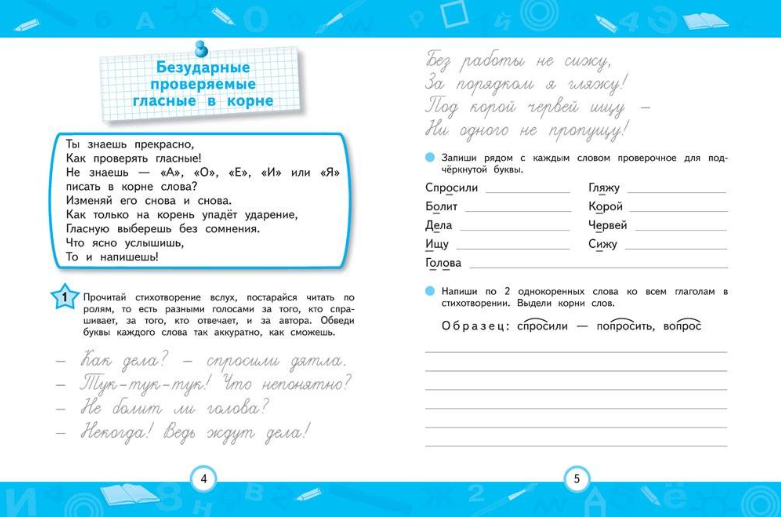 Безударные
проверяемые
гласные в корне
Ты знаешь прекрасно,
Как проверять гласные!
Не знаешь — «А», «О», «Е», «И» или «Я»
писать в корне слова?
Изменяй его снова и снова.
Как только на корень упадёт ударение,
Гласную выберешь без сомнения.
Что ясно услышишь,
То и напишешь!
1 Прочитай стихотворение вслух, постарайся читать по
ролям, то есть разными голосами за того, кто спра-
шивает, за того, кто отвечает, и за автора. Обведи
буквы каждого слова так аккуратно, как сможешь.
— Как дела? — спросили дятла.
— Тук-тук-тук! Что непонятно?
— Не болит ли голова?
— Некогда! Ведь ждут дела!
4
Без работы не сижу,
За порядком я гляжу!
Под корой червей ищу —
Ни одного не пропущу!
Запиши рядом с каждым словом проверочное для под-
чёркнутой буквы.
Спросили Гляжу
Болит Корой
Дела Червей
Ищу Сижу
Голова
Напиши по 2 однокоренных слова ко всем глаголам в
стихотворении. Выдели корни слов.
Образец: спросили — попросить, вопрос
5